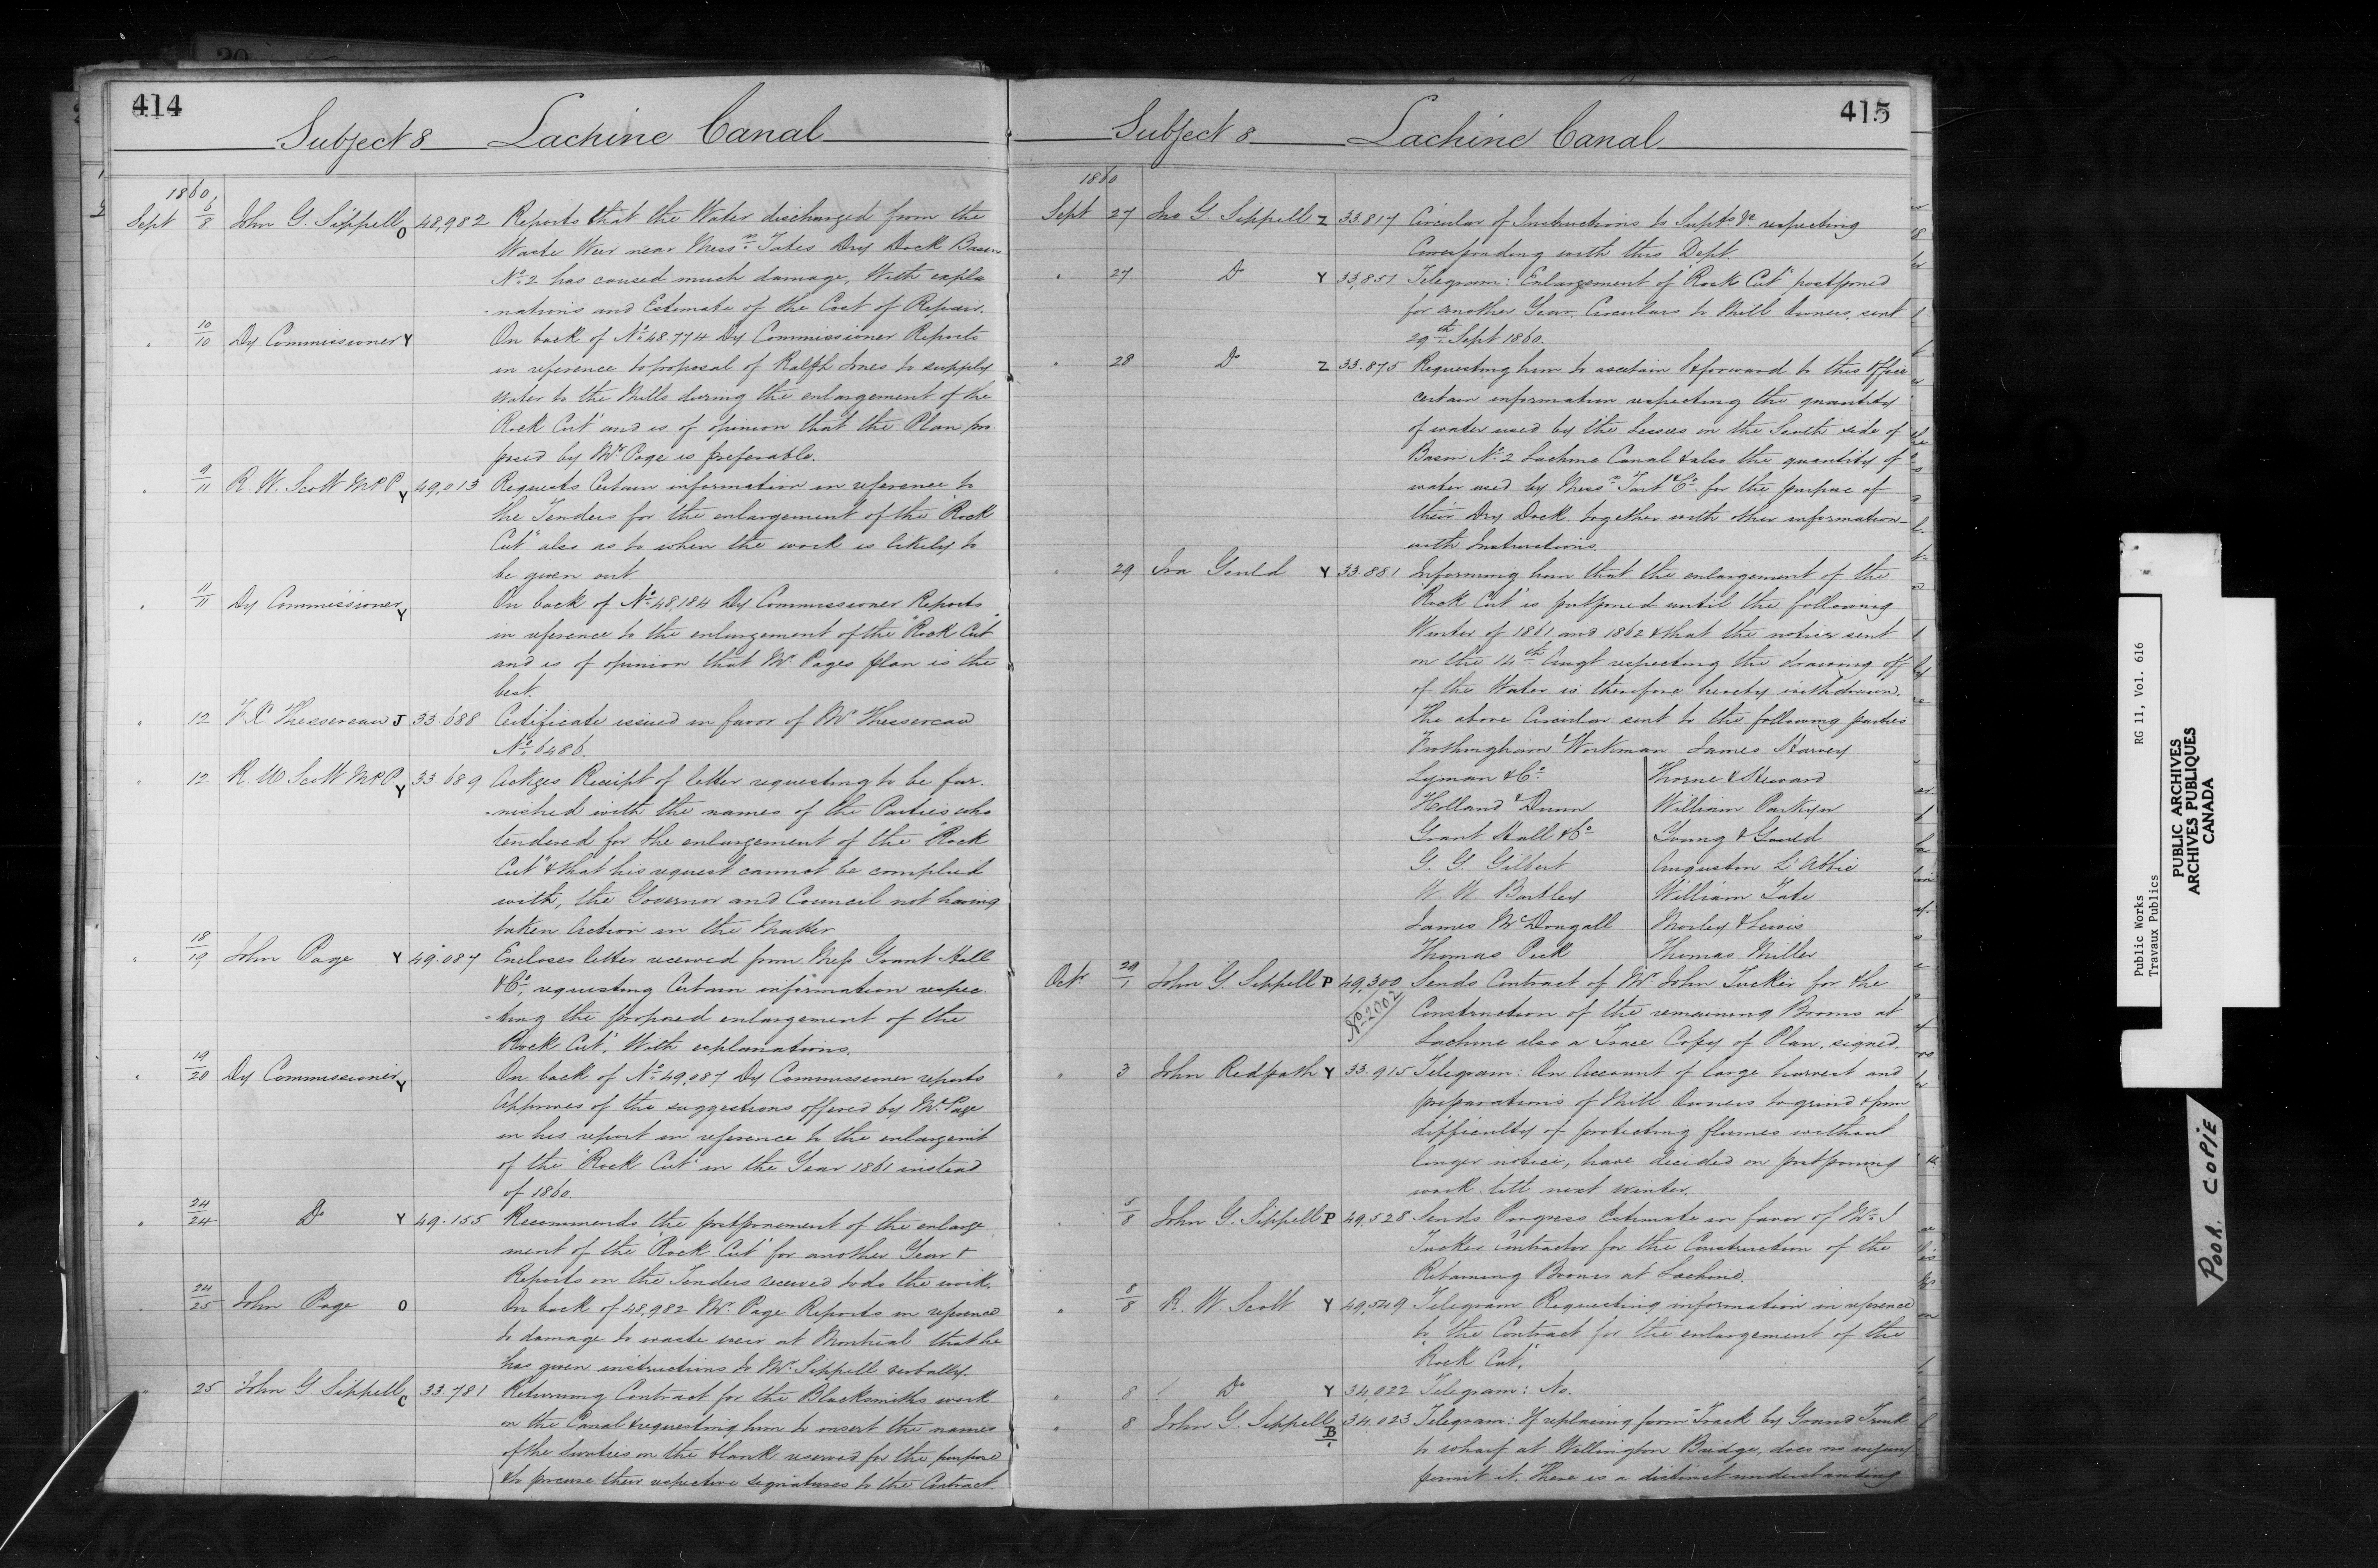 414
Subject 8 Lachine Canal
1860
Sept 6/8 John G. Sippell O 48,982 Reports that the Water discharged from the
Waste Weir near Messrs. Tates Dry Dock Basin
No. 2 has caused much damage, With expla
nations and Estimate of the Cost of Repair.
" 10/10 Dy Commissioner Y On back of No. 48.774 Dy Commissioner Reports
in reference to proposal of Ralph Jones to supply
water to the Mills during the enlargement of the
"Rock Cut" and is of opinion that the Plan pro
posed by Mr Page is preferable.
" 9/11 R. W. Scott M.P.P. Y 49,013 Requests Certain information in reference to
the Tenders for the enlargement of the "Rock
Cut" also as to when the work is likely to
be given out.
" 11/11 Dy Commissioner Y On back of No. 48,184 Dy Commissioner Reports
in reference to the enlargement of the "Rock Cut"
and is of opinion that Mr. Pages plan is the
best.
" 12 J 33.688 Certificate issued in favor of Mr
No. 6486.
" 12 R. W Scott M.P.P. Y 33.689 Ackges Receipt of letter requesting to be fur-
nished with the names of the Parties who
tendered for the enlargement of the "Rock
Cut" & that his request cannot be complied
with, the Governor and Council not having
taken Action in the Matter
" 18/19 John Page Y 49.087 Encloses letter received from Mess Grant Hall
& Co., requesting Certain information respec-
ting the proposed enlargement of the
Rock Cut". With explanations.
" 19/20 Dy Commissioner Y On back of No. 49,087 Dy Commissioner reports
Approves of the suggestions offered by Mr. Page
in his report in reference to the enlargemt
of the "Rock Cut" in the Year 1861 instead
of 1860.
" 24/24 Do Y 49.155 Recommends the postponement of the enlarge
ment of the "Rock Cut" for another Year &
Reports on the Tenders received to do the work.
" 24/25 John Page O On back of 48,982 Mr. Page Reports in reference
to damage to waste weir at Montreal that he
has given instructions to Mr. Sippell verbally.
" 25 John G Sippell C 33.781 Returning Contract for the Blacksmiths work
on the Canal & requesting him to insert the names
of the Sureties in the blank reserved for the purpose
& to procure their respective signatures to the Contract.
415
Subject 8 Lachine Canal
1860
Sept 27 Jno G Sippell Z 33.817 Circular of Instructions to Supts &c respecting
Corresponding with this Dept.
" 27 Do Y 33,851 Telegram: Enlargement of "Rock Cut" postponed
for another Year. Circulars to Mill Owners, sent
29th Sept 1860.
" 28 Do Z 33.875 Requesting him to ascertain & forward to this Office
certain information respecting the quantity
of water used by the Lessees on the South side of
Basin No. 2 Lachine Canal & also the quantity of
water used by Messrs. Tait & Co. for the purpose of
their Dry Dock together with other information
with Instructions.
" 29 Ira Gould Y 33.881 Informing him that the enlargement of the
"Rock Cut" is postponed until the following
Winter of 1861 and 1862 & that the notices sent
on the 14th Augt respecting the drawing off
of the Water is therefore hereby withdrawn.
The above Circular sent to the following parties
Frothingham & Workman James Harvey
Lyman & Co. Thorne & Heward
Holland & Dunn William Parkyn
Grant Hall & Co Young & Gould
G. G. Gilbert Augustin L'Abbie
W. W. Bartley William Tate
James McDougall Morley & Lewis
Thomas Peck Thomas Miller
Octr 29/1 John G. Sippell P 49,300 Sends Contract of Mr. John Tucker for the
No. 2002 Construction of the remaining Booms at
Lachine also a Trace Copy of Plan, signed.
" 3 John Redpath Y 33.915 Telegram: On Account of large harvest and
preparations of Mill Owners to grind & from
difficulty of protecting flumes without
longer notice, have decided on postponing
work till next winter.
" 5/8 John G. Sippell P 49,528 Sends Progress Estimate in favor of Mr. J
Tucker Contractor for the Construction of the
Retaining Booms at Lachine.
" 8/8 R. W. Scott Y 49,549 Telegram Requesting information in reference
to the Contract for the enlargement of the
"Rock Cut".
" 8 Do Y 34,022 Telegram: No.
" 8 John G. Sippell B 34.023 Telegram: If replacing former Track by Grand Trunk
to wharf at Wellington Bridge, does no injury
permit it. There is a distinct understanding
Public Works RG 11, Vol. 616
Travaux Publics
PUBLIC ARCHIVES
ARCHIVES PUBLIQUES
CANADA
POOR COPIE